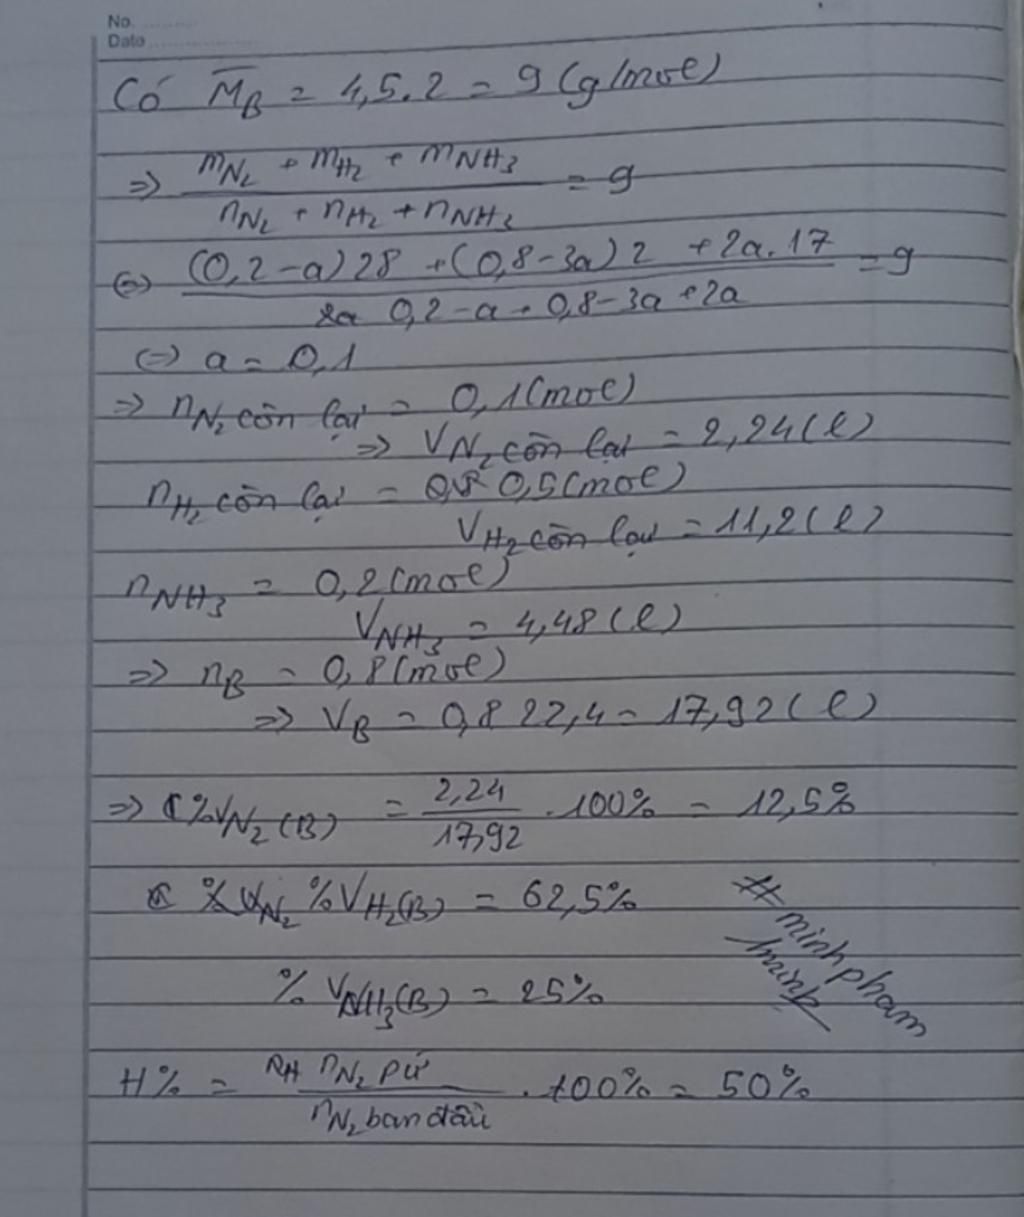 No.
Date
Có M̅_B = 4,5.2 = 9 (g/mol)
=> (m_N₂ + m_H₂ + m_NH₃) / (n_N₂ + n_H₂ + n_NH₃) = 9
<=> ((0,2-a)28 + (0,8-3a)2 + 2a.17) / (0,2-a + 0,8-3a + 2a) = 9
<=> a = 0,1
=> n_N₂ còn lại = 0,1 (mol)
=> V_N₂ còn lại = 2,24 (l)
n_H₂ còn lại = 0,5 (mol)
V_H₂ còn lại = 11,2 (l)
n_NH₃ = 0,2 (mol)
V_NH₃ = 4,48 (l)
=> n_B = 0,8 (mol)
=> V_B = 0,8 22,4 = 17,92 (l)
=> %V_N₂(B) = 2,24 / 17,92 . 100% = 12,5%
%V_H₂(B) = 62,5%
%V_NH₃(B) = 25%
# minhpham
H% = n_N₂ pứ / n_N₂ ban đầu . 100% = 50%